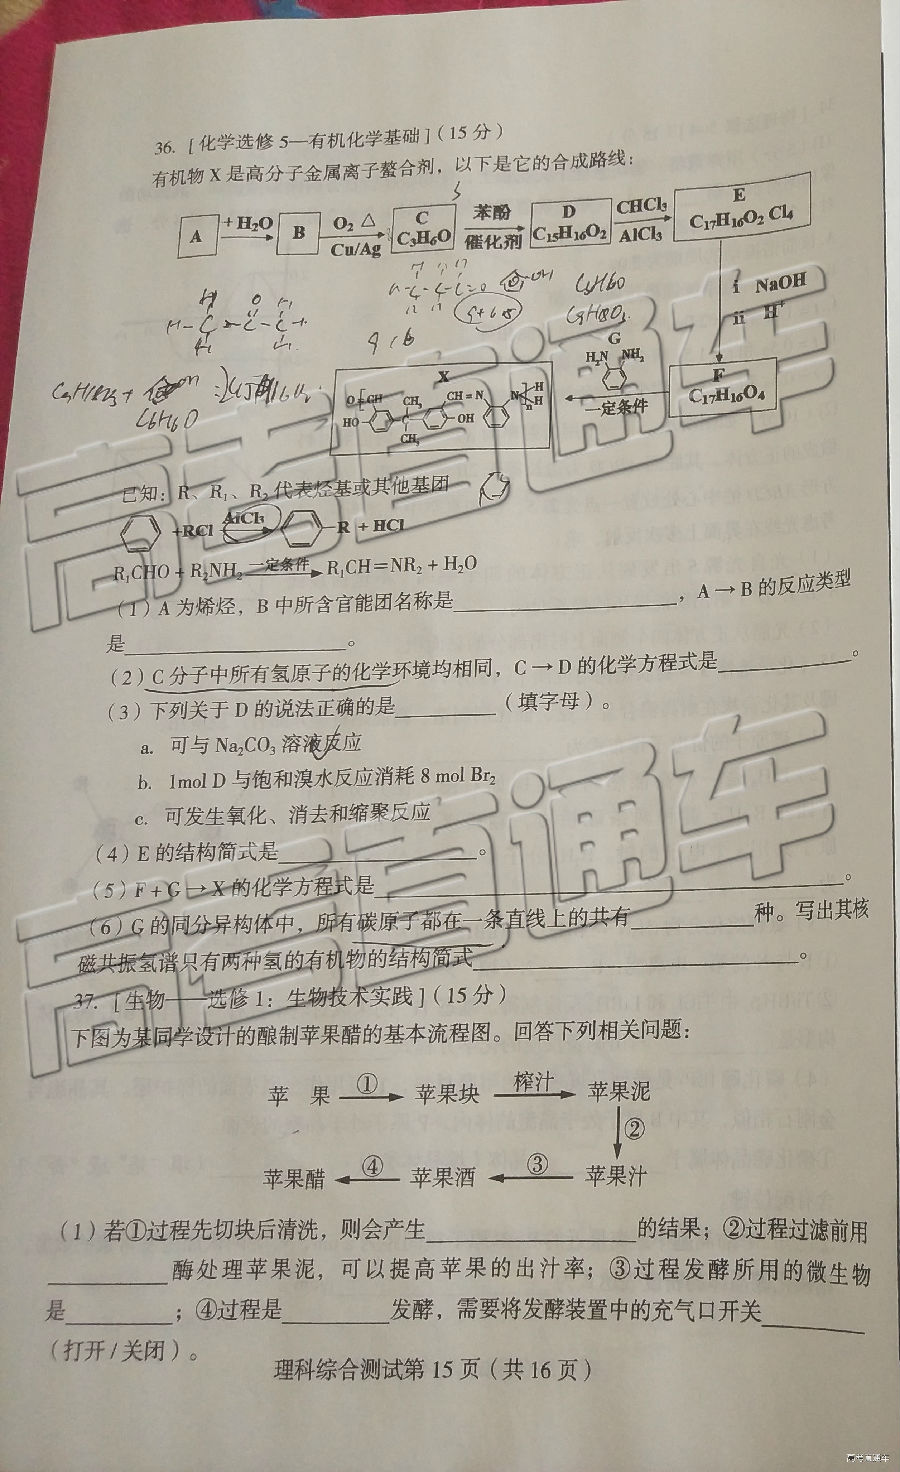 36.［化学选修5—有机化学基础］（15分）
有机物X是高分子金属离子螯合剂，以下是它的合成路线：
A +H₂O B O₂ △ Cu/Ag C C₃H₆O 苯酚 催化剂 D C₁₅H₁₆O₂ CHCl₃ AlCl₃ E C₁₇H₁₆O₂Cl₄
i NaOH
ii H⁺
G
H₂N NH₂
F
C₁₇H₁₆O₄
一定条件
X
O CH CH₃ CH=N N H
HO C OH n H
CH₃
已知：R、R₁、R₂代表烃基或其他基团
+RCl AlCl₃ R + HCl
R₁CHO + R₂NH₂ 一定条件 R₁CH=NR₂ + H₂O
（1）A为烯烃，B中所含官能团名称是，A→B的反应类型
是。
（2）C分子中所有氢原子的化学环境均相同，C→D的化学方程式是。
（3）下列关于D的说法正确的是（填字母）。
a. 可与Na₂CO₃溶液反应
b. 1mol D与饱和溴水反应消耗8 mol Br₂
c. 可发生氧化、消去和缩聚反应
（4）E的结构简式是。
（5）F+G→X的化学方程式是。
（6）G的同分异构体中，所有碳原子都在一条直线上的共有种。写出其核
磁共振氢谱只有两种氢的有机物的结构简式。
37.［生物——选修1：生物技术实践］（15分）
下图为某同学设计的酿制苹果醋的基本流程图。回答下列相关问题：
苹 果 ① 苹果块 榨汁 苹果泥
②
苹果醋 ④ 苹果酒 ③ 苹果汁
（1）若①过程先切块后清洗，则会产生的结果；②过程过滤前用
酶处理苹果泥，可以提高苹果的出汁率；③过程发酵所用的微生物
是；④过程是发酵，需要将发酵装置中的充气口开关
（打开/关闭）。
理科综合测试第15页（共16页）
高考直通车
高考直通车
高考直通车